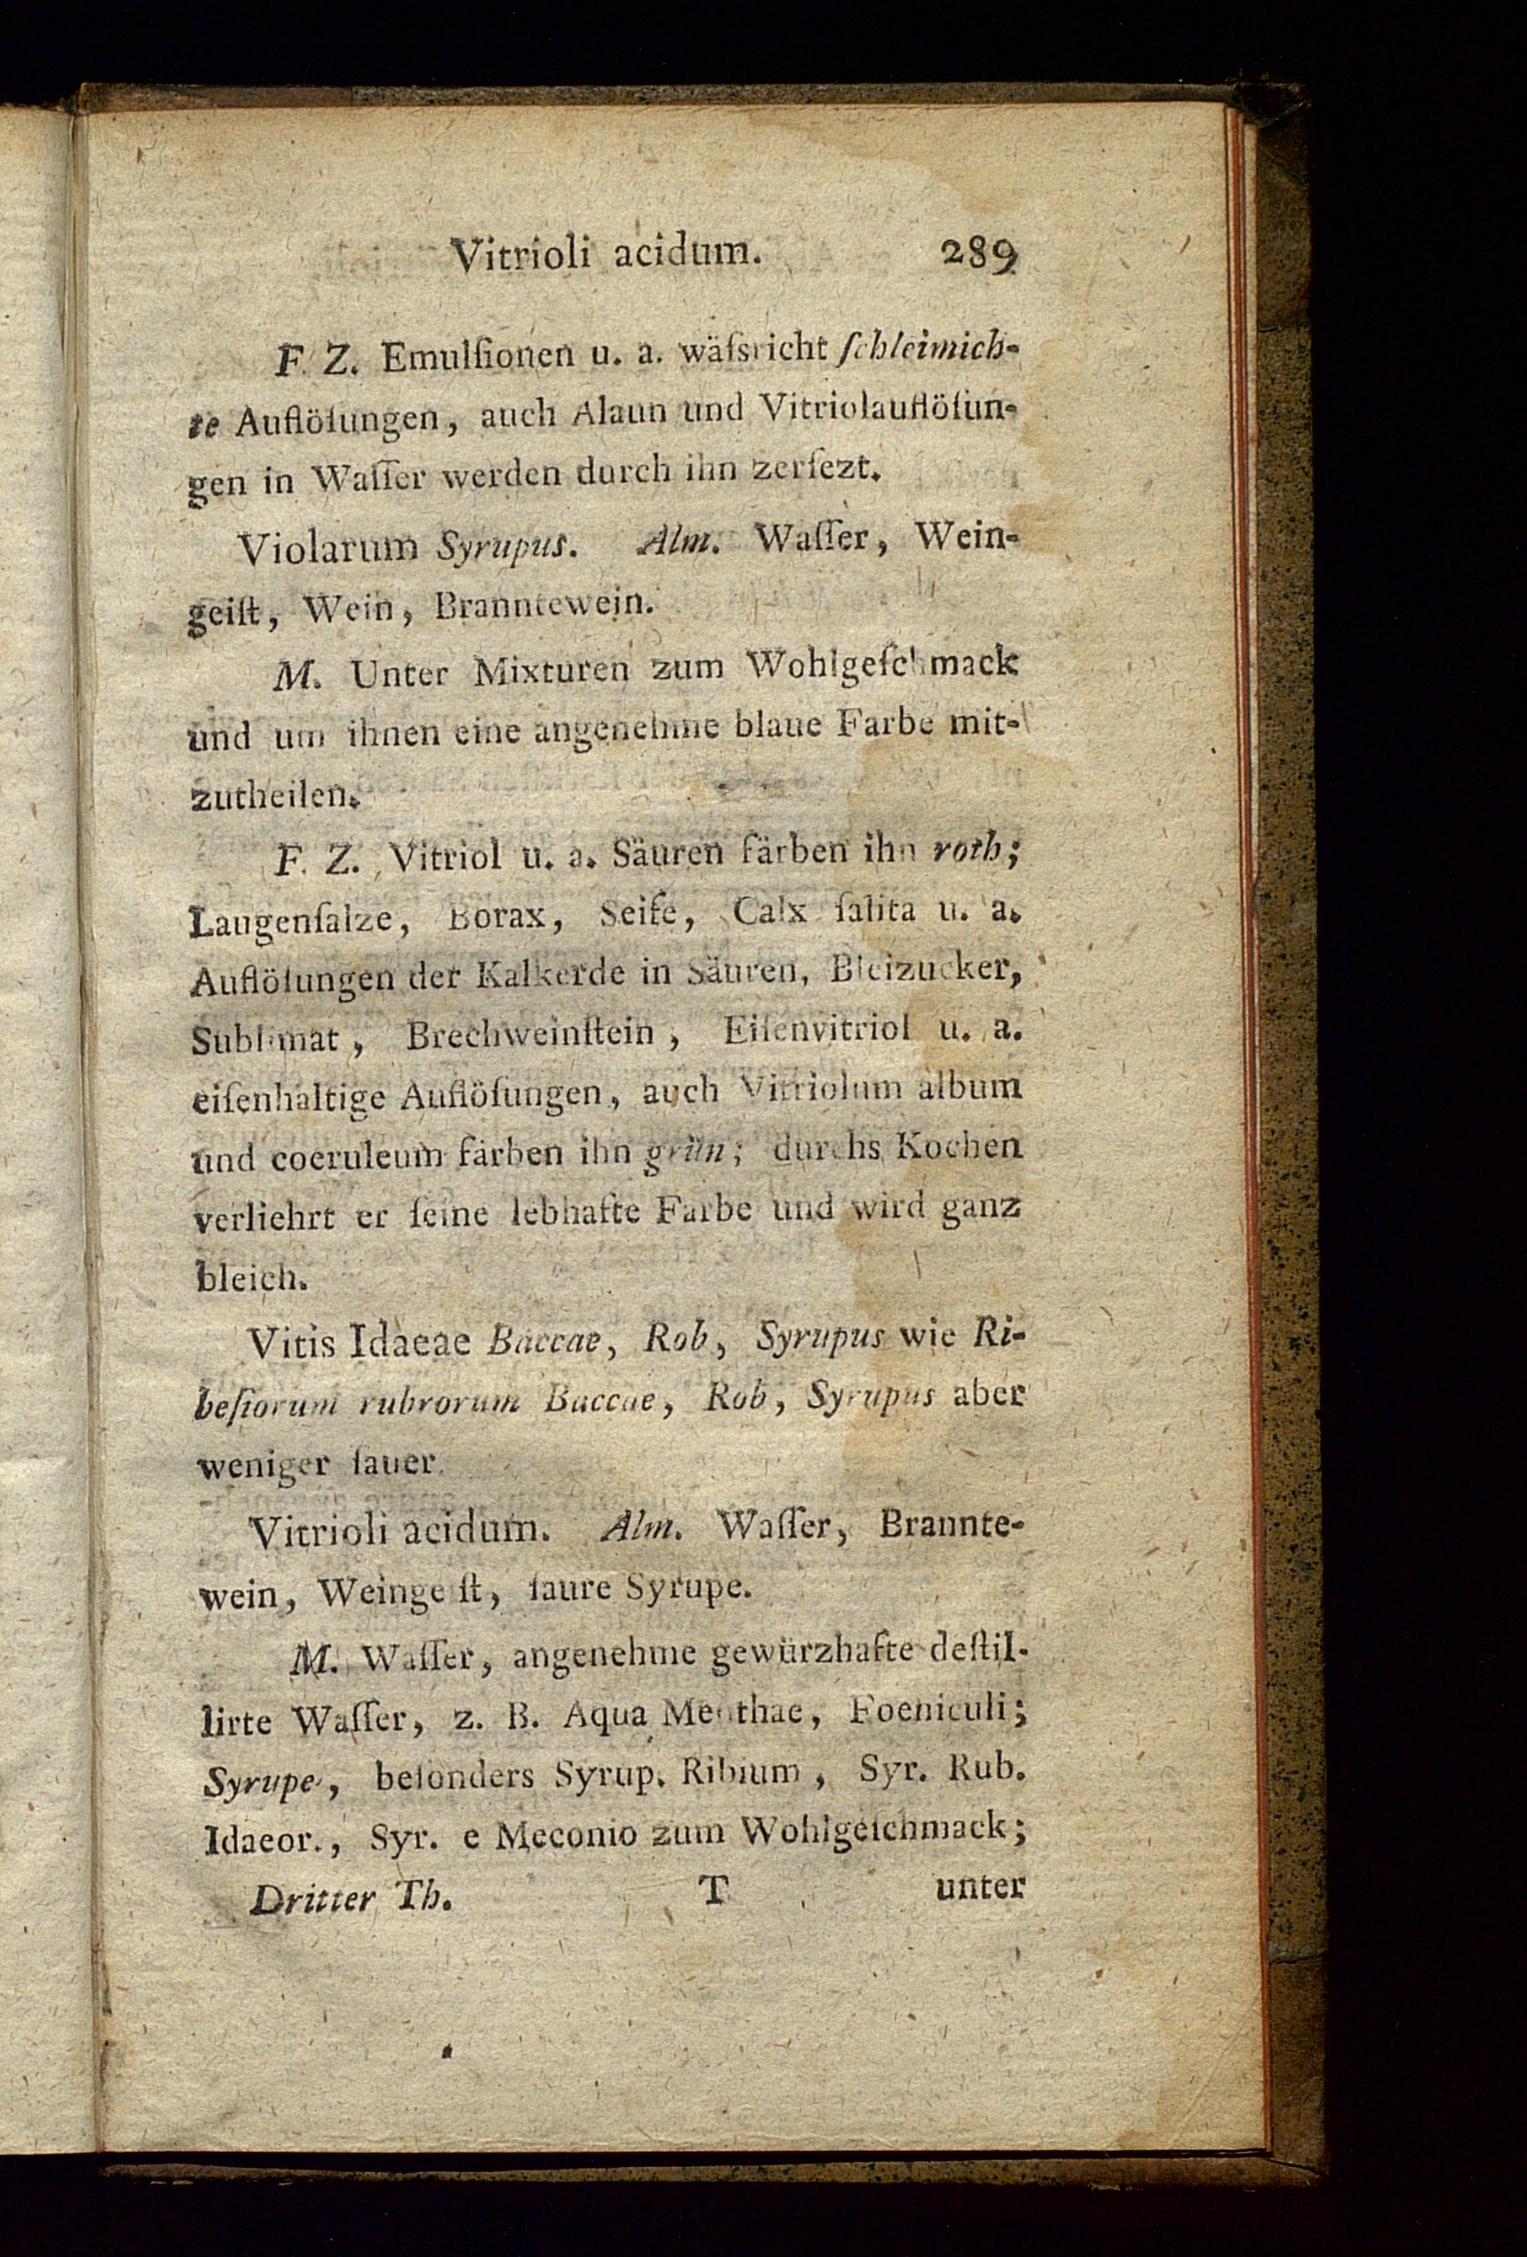 Vitrioli acidum. 289
F. Z. Emulſionen u. a. wäſsricht ſchleimich-
te Auflöſungen, auch Alaun und Vitriolauflöſun-
gen in Waſſer werden durch ihn zerſezt.
Violarum Syrupus. Alm. Waſſer, Wein-
geiſt, Wein, Branntewein.
M. Unter Mixturen zum Wohlgeſchmack
und um ihnen eine angenehme blaue Farbe mit-
zutheilen.
F. Z. Vitriol u. a. Säuren färben ihn roth;
Laugenſalze, Borax, Seife, Calx ſalita u. a.
Auflöſungen der Kalkerde in Säuren, Bleizucker,
Sublimat, Brechweinſtein, Eiſenvitriol u. a.
eiſenhaltige Auflöſungen, auch Vitriolum album
und coeruleum färben ihn grün; durchs Kochen
verliehrt er ſeine lebhafte Farbe und wird ganz
bleich.
Vitis Idaeae Baccae, Rob, Syrupus wie Ri-
beſiorum rubrorum Baccae, Rob, Syrupus aber
weniger ſauer.
Vitrioli acidum. Alm. Waſſer, Brannte-
wein, Weingeiſt, ſaure Syrupe.
M. Waſſer, angenehme gewürzhafte deſtil-
lirte Waſſer, z. B. Aqua Menthae, Foeniculi;
Syrupe, beſonders Syrup. Ribium, Syr. Rub.
Idaeor., Syr. e Meconio zum Wohlgeſchmack;
Dritter Th. T unter